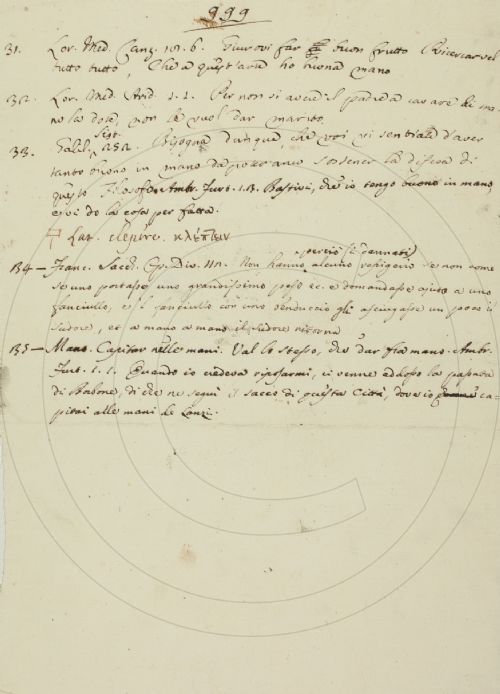 999
31. Lor. Med. Canz. 101. 6. far buon frutto Ricercarvel
tutto tutto, Che a quest'arte ho buona mano
32. Lor. Med. Arid. 1. 1. Per non si avere il padre a cavare di ma
no la dote, non le vuol dar marito.
33. Galil. Sist. 252. Bisogna dunque, che voi vi sentiate d'aver
tanto buono in mano da poter anco sostener la difesa di
questo Filosofo. Ambr. Furt. 1. 2. Bastivi, che io tengo buono in mano
e vi do la cosa per fatta.
Lat. clepere. κλέπτειν
perciò (i dannati)
134 — Franc. Sacch. Op. Div. 111. Non hanno alcuno refrigerio se non come
se uno portasse uno grandissimo peso ec. e domandasse ajuto a uno
fanciullo, e 'l fanciullo con uno benduccio gli asciugasse un poco il
sudore, et a mano a mano il sudore ritorna
135 — Mano. Capitar nelle mani. Val lo stesso, che dar fra mano. Ambr.
Furt. 1. 1. Quando io credeva riposarmi, ci venne addosso la papata
di Babone, di che ne seguì il sacco di questa Città, dove io ca-
pitai alle mani de Lanzi.